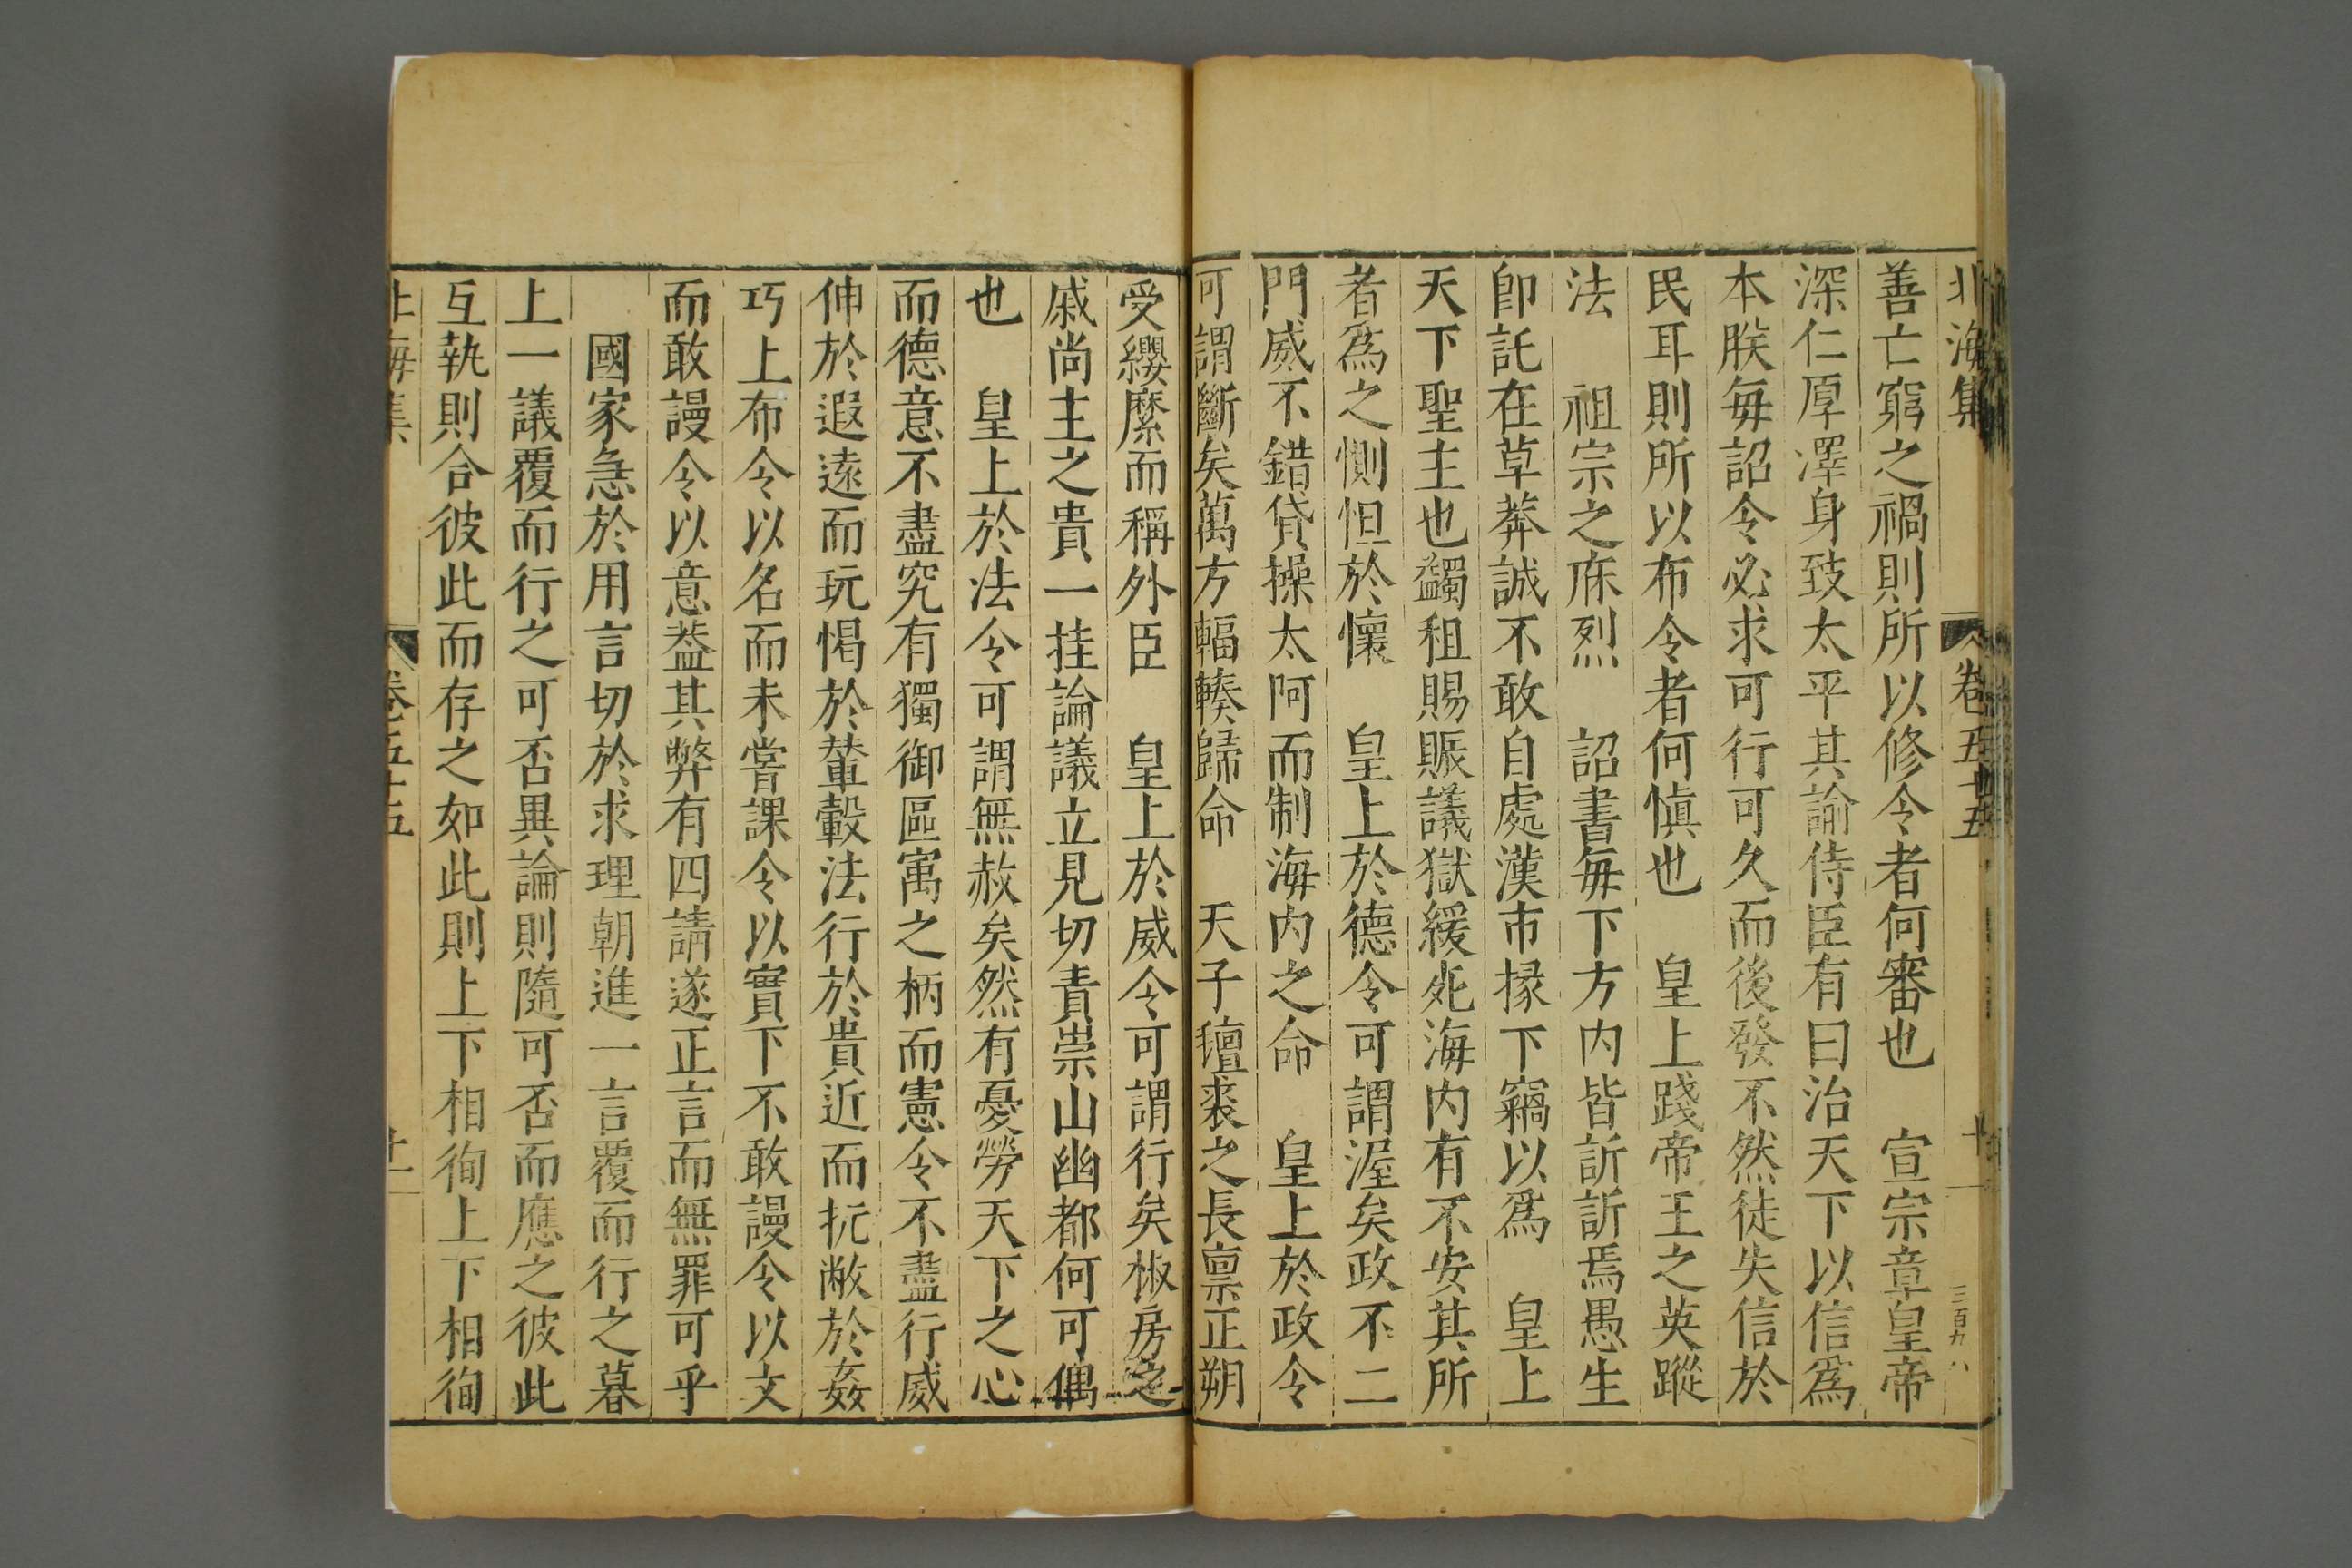 北海集 卷五十五 十 三百九八
善亡窮之禍則所以修令者何審也 宣宗章皇帝
深仁厚澤身致太平其諭侍臣有曰治天下以信爲
本朕每詔令必求可行可久而後發不然徒失信於
民耳則所以布令者何慎也 皇上踐帝王之英蹤
法 祖宗之庥烈 詔書每下方內皆訢訢焉愚生
卽託在草莽誠不敢自處漢市掾下竊以爲 皇上
天下聖主也蠲租賜賑議獄緩死海內有不安其所
者爲之惻怛於懷 皇上於德令可謂渥矣政不二
門威不錯貸操太阿而制海內之命 皇上於政令
可謂斷矣萬方輻輳歸命 天子氊裘之長禀正朔
受纓縻而稱外臣 皇上於威令可謂行矣椒房之
戚尚主之貴一挂論議立見切責崇山幽都何可偶
也 皇上於法令可謂無赦矣然有憂勞天下之心
而德意不盡究有獨御區寓之柄而憲令不盡行威
伸於遐逺而玩愒於輦轂法行於貴近而抏敝於姦
巧上布令以名而未嘗課令以實下不敢謾令以文
而敢謾令以意葢其弊有四請遂正言而無罪可乎
國家急於用言切於求理朝進一言覆而行之暮
上一議覆而行之可否異論則隨可否而應之彼此
互執則合彼此而存之如此則上下相徇上下相徇
北海集 卷五十五 十一